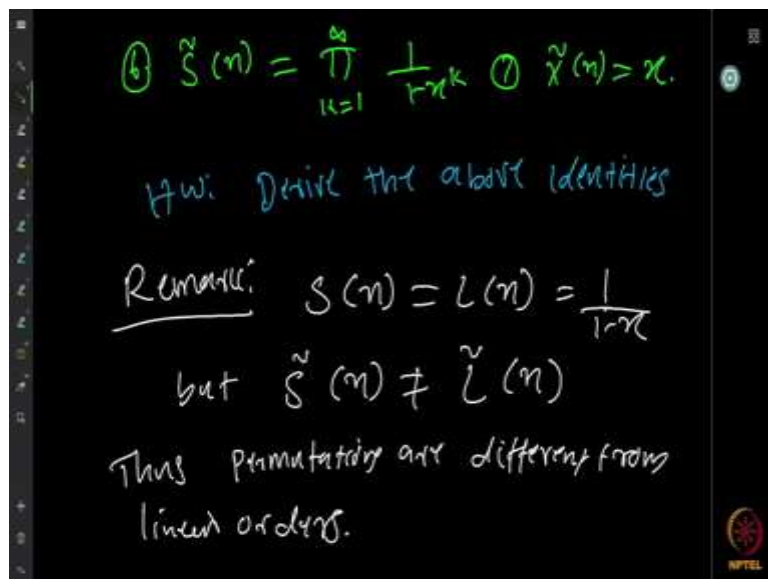 ⑥ S̃(x) = ∞∏k=1 1/(1-x^k) ⑦ X̃(x) = x.
HW: Derive the above identities
Remark: S(x) = L(x) = 1/(1-x)
but S̃(x) ≠ L̃(x)
Thus permutations are different from
linear orders.
NPTEL